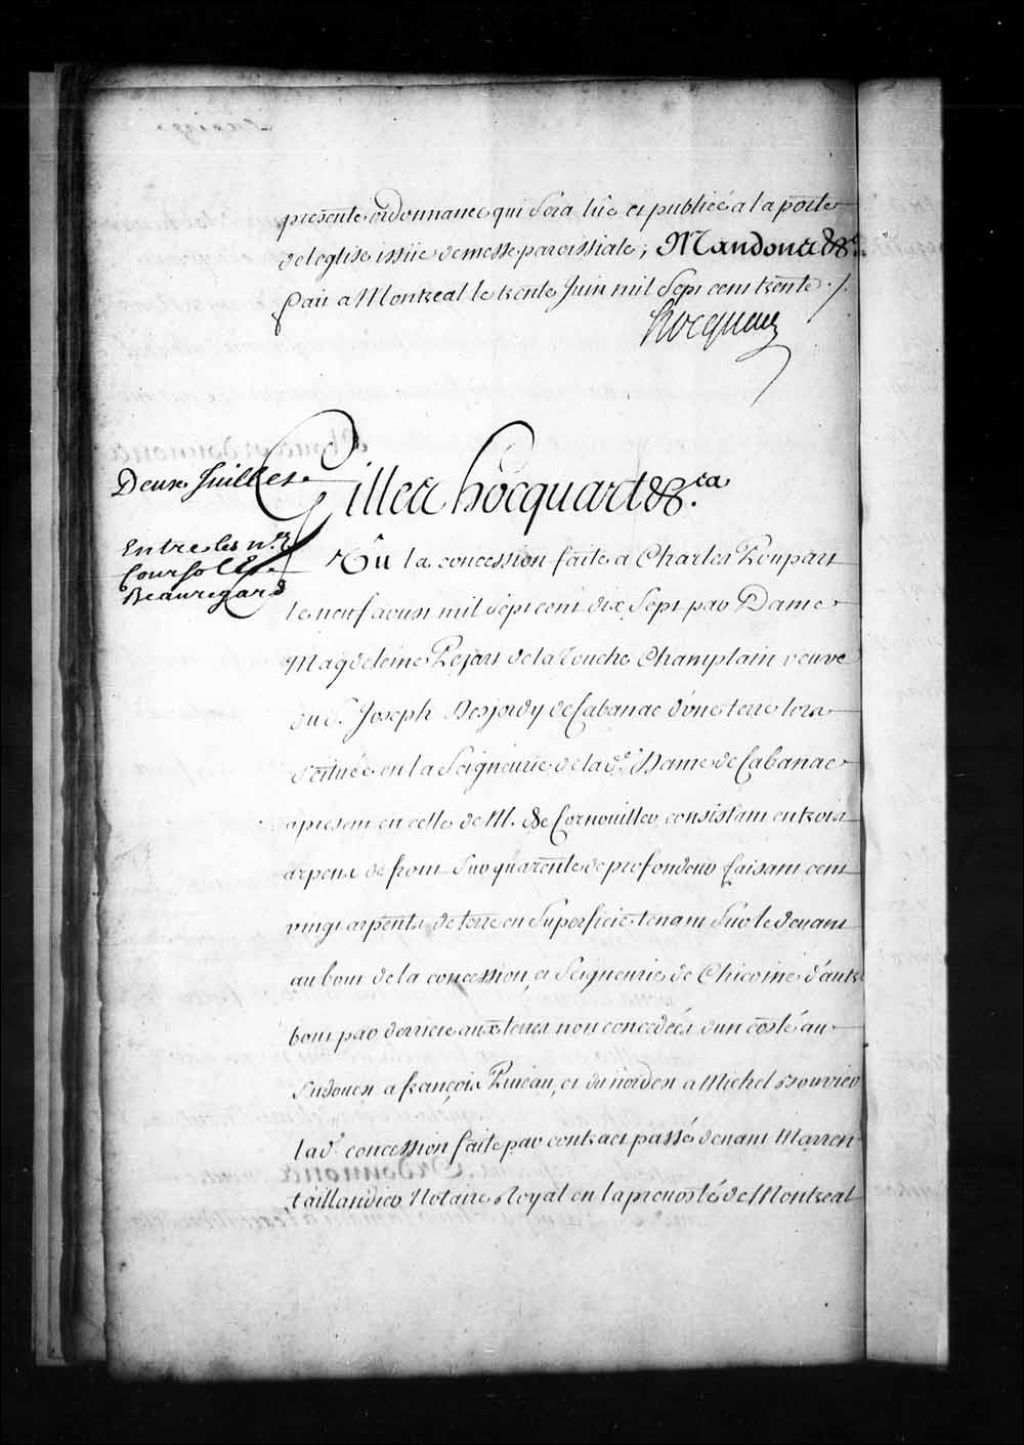 presente ordonnance qui sera lüe et publiée a la porte
de leglise issüe de messe paroissiale; Mandons &c.
fait a Montreal le trente Juin mil sept cent trente ./.
hocquart
Deux Juillet
Gilles hocquart &ca.
Entre les nés
Coursolle
Beauregard
Vû la concession faite a Charles Poupart
le neuf aoust mil sept cent dix sept par Dame
Magdeleine Pezart de la Touche Champlain veuve
du S. Joseph Desjordy de Cabanac d'une terre lors
scituée en la Seigneurie de la de. Dame de Cabanac
apresent en celle de M. de Cornouiller consistant en trois
arpens de front sur quarente de profondeur faisant cent
vingt arpents de terre en superficie tenant sur le devant
au bout de la concession et Seigneurie de Chicoine d'autre
bout par derriere aux terres non concedées d'un costé au
sudouest a françois Pineau, et du nordest a Michel Bouvier
lad. concession faite par contract passé devant Marien
taillandier Notaire Royal en la prevosté de Montreal